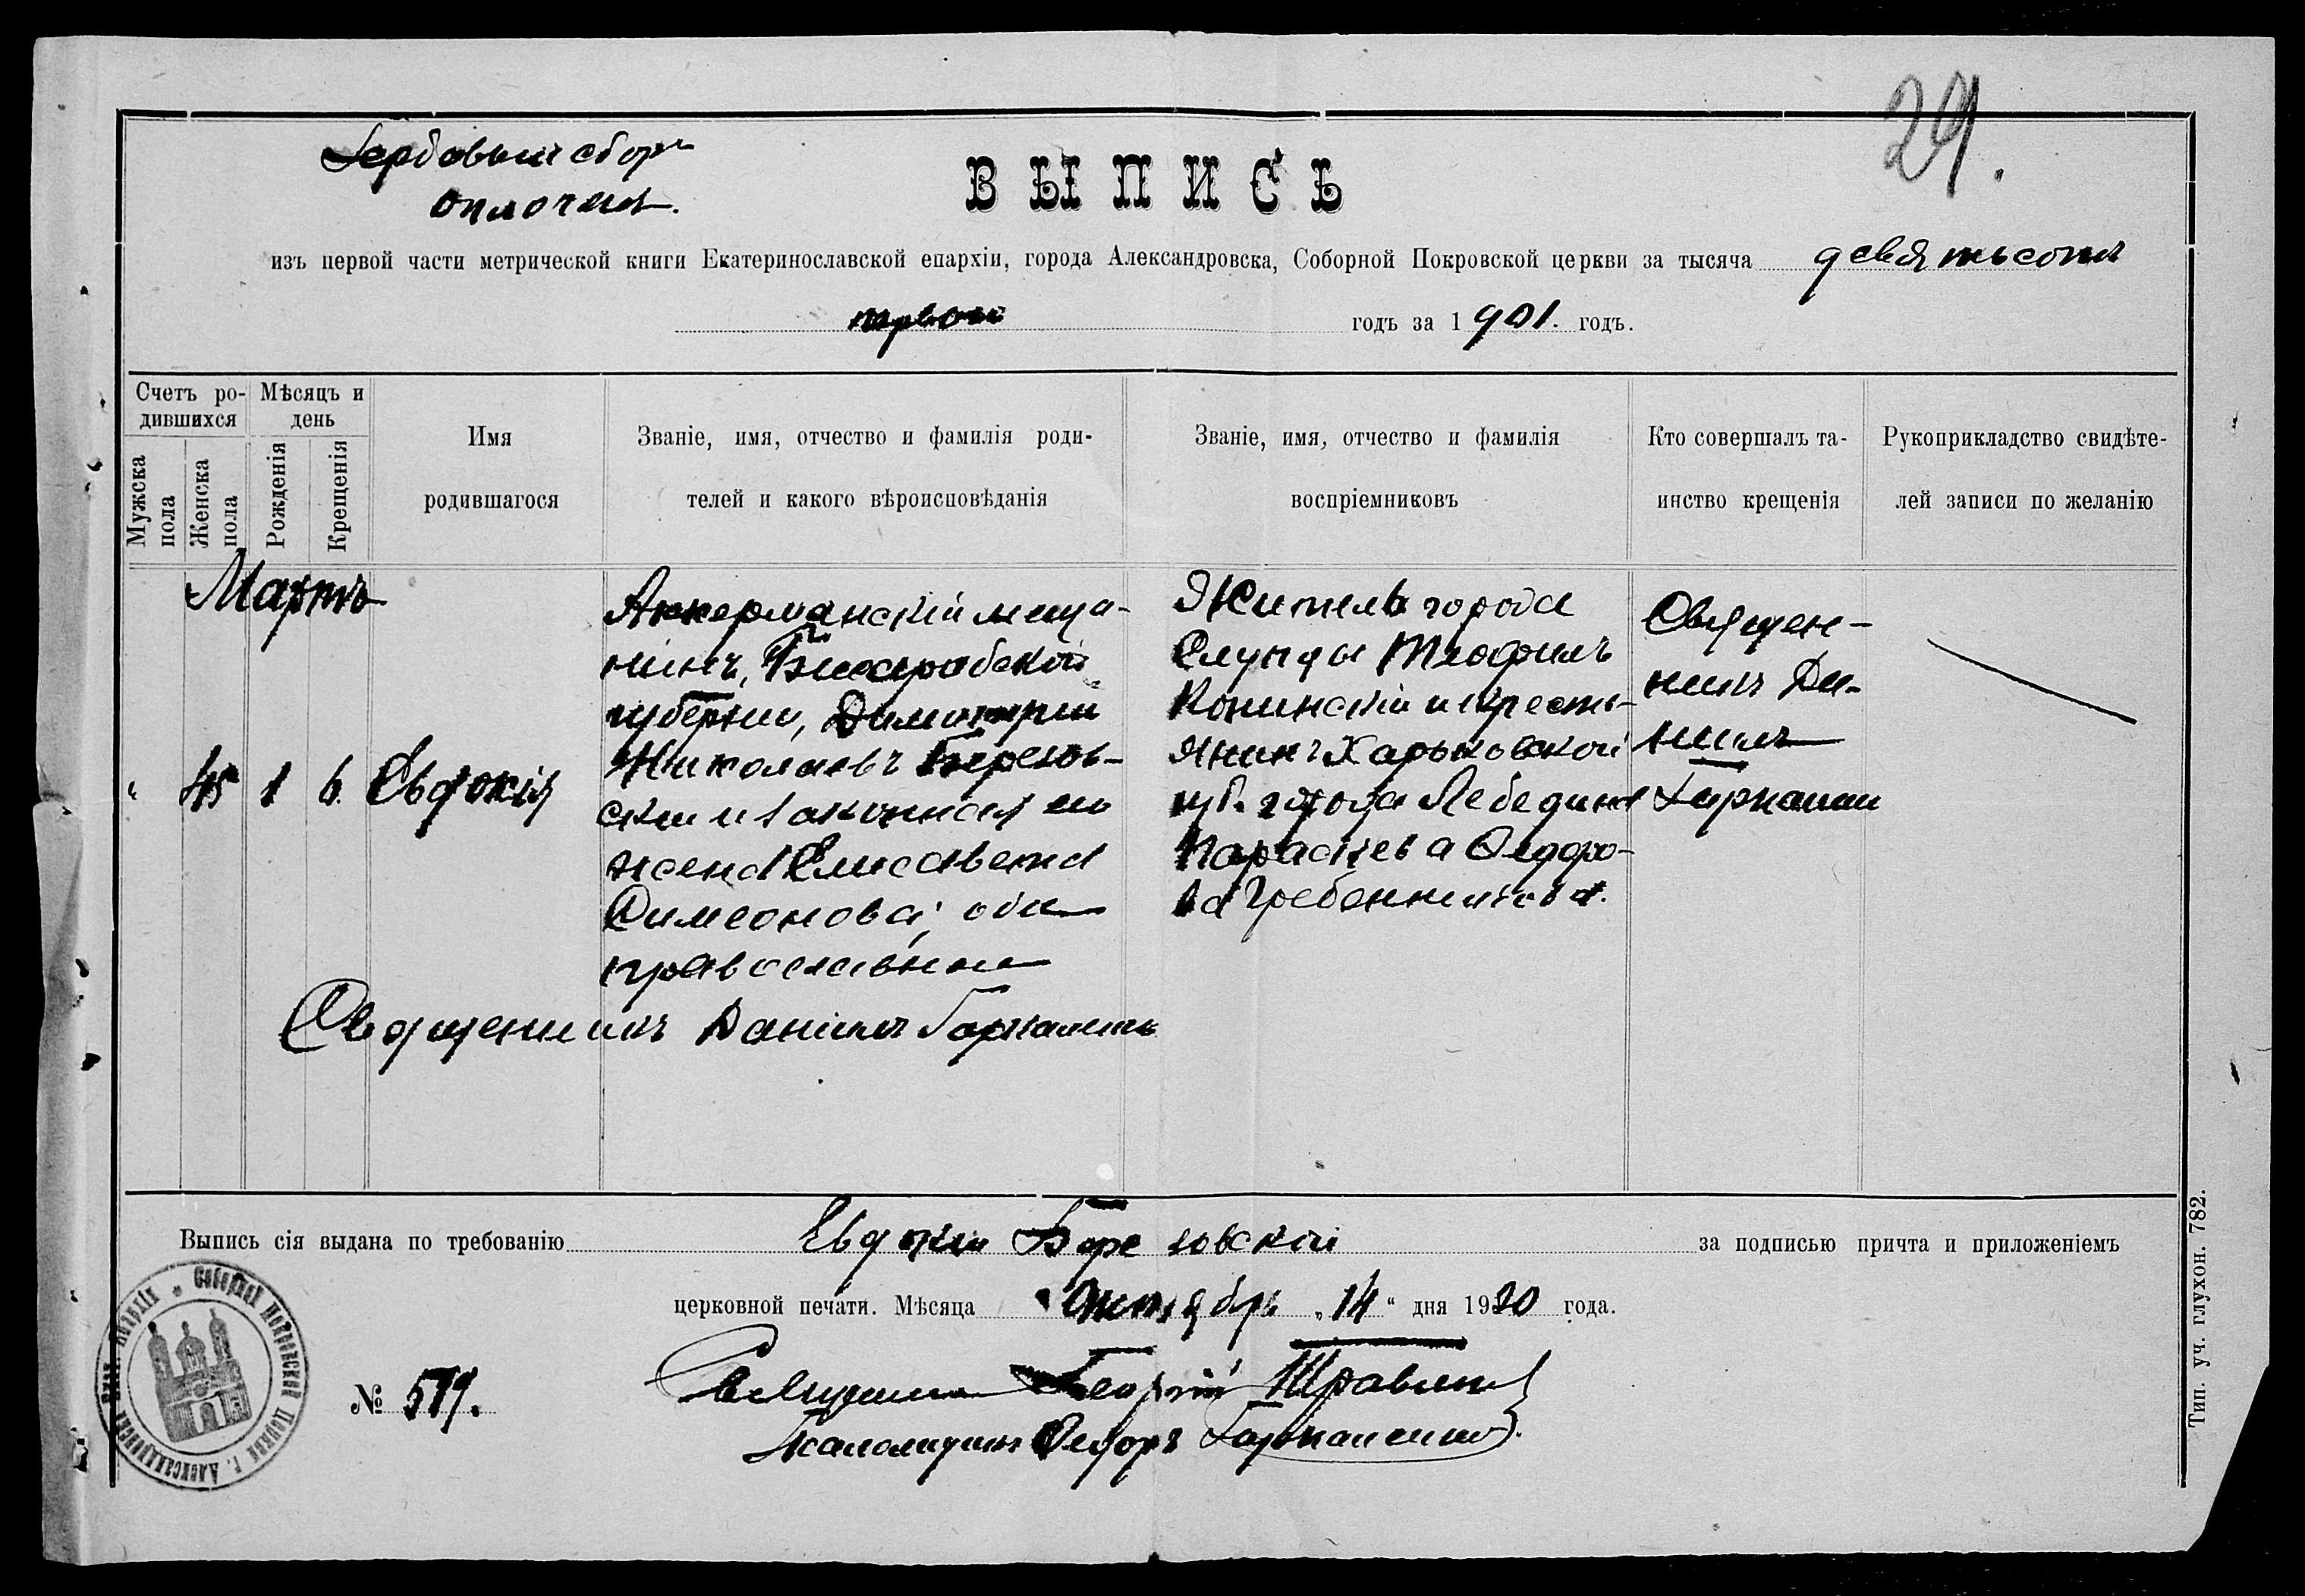 29.
Гербовый сборъ
оплоченъ.
ВЫПИСЬ
изъ первой части метрической книги Екатеринославской епархіи, города Александровска, Соборной Покровской церкви за тысяча девятьсотъ
первый годъ за 1901. годъ.
Счетъ ро-
дившихся
Мѣсяцъ и
день
Мужска
пола
Женска
пола
Рожденія
Крещенія
Имя
родившагося
Званіе, имя, отчество и фамилія роди-
телей и какого вѣроисповѣданія
Званіе, имя, отчество и фамилія
воспріемниковъ
Кто совершалъ та-
инство крещенія
Рукоприкладство свидѣте-
лей записи по желанію
Мартъ
45 1 6. Евдокія
Аккерманскій меща-
нинъ, Бессарабской
губерніи, Димитрій
Николаевъ Березов-
скій и законная его
жена Елисавета
Симеонова; оба
православные
Житель города
Теофилъ
и кресть-
янинъ Харьковской
губ. города Лебедина
Параскева Федоро-
ва Гребенникова.
Священ-
никъ Да-
ніилъ
Священникъ Даніилъ
Выпись сія выдана по требованію Евдокіи Березовской за подписью причта и приложеніемъ
церковной печати. Мѣсяца Октябрь „14“ дня 1920 года.
№ 519.
Священникъ Георгій
Псаломщикъ Федоръ
Соборной Покровской Церкви г. Александровска Екат. Епархіи
Тип. уч. глухон. 782.